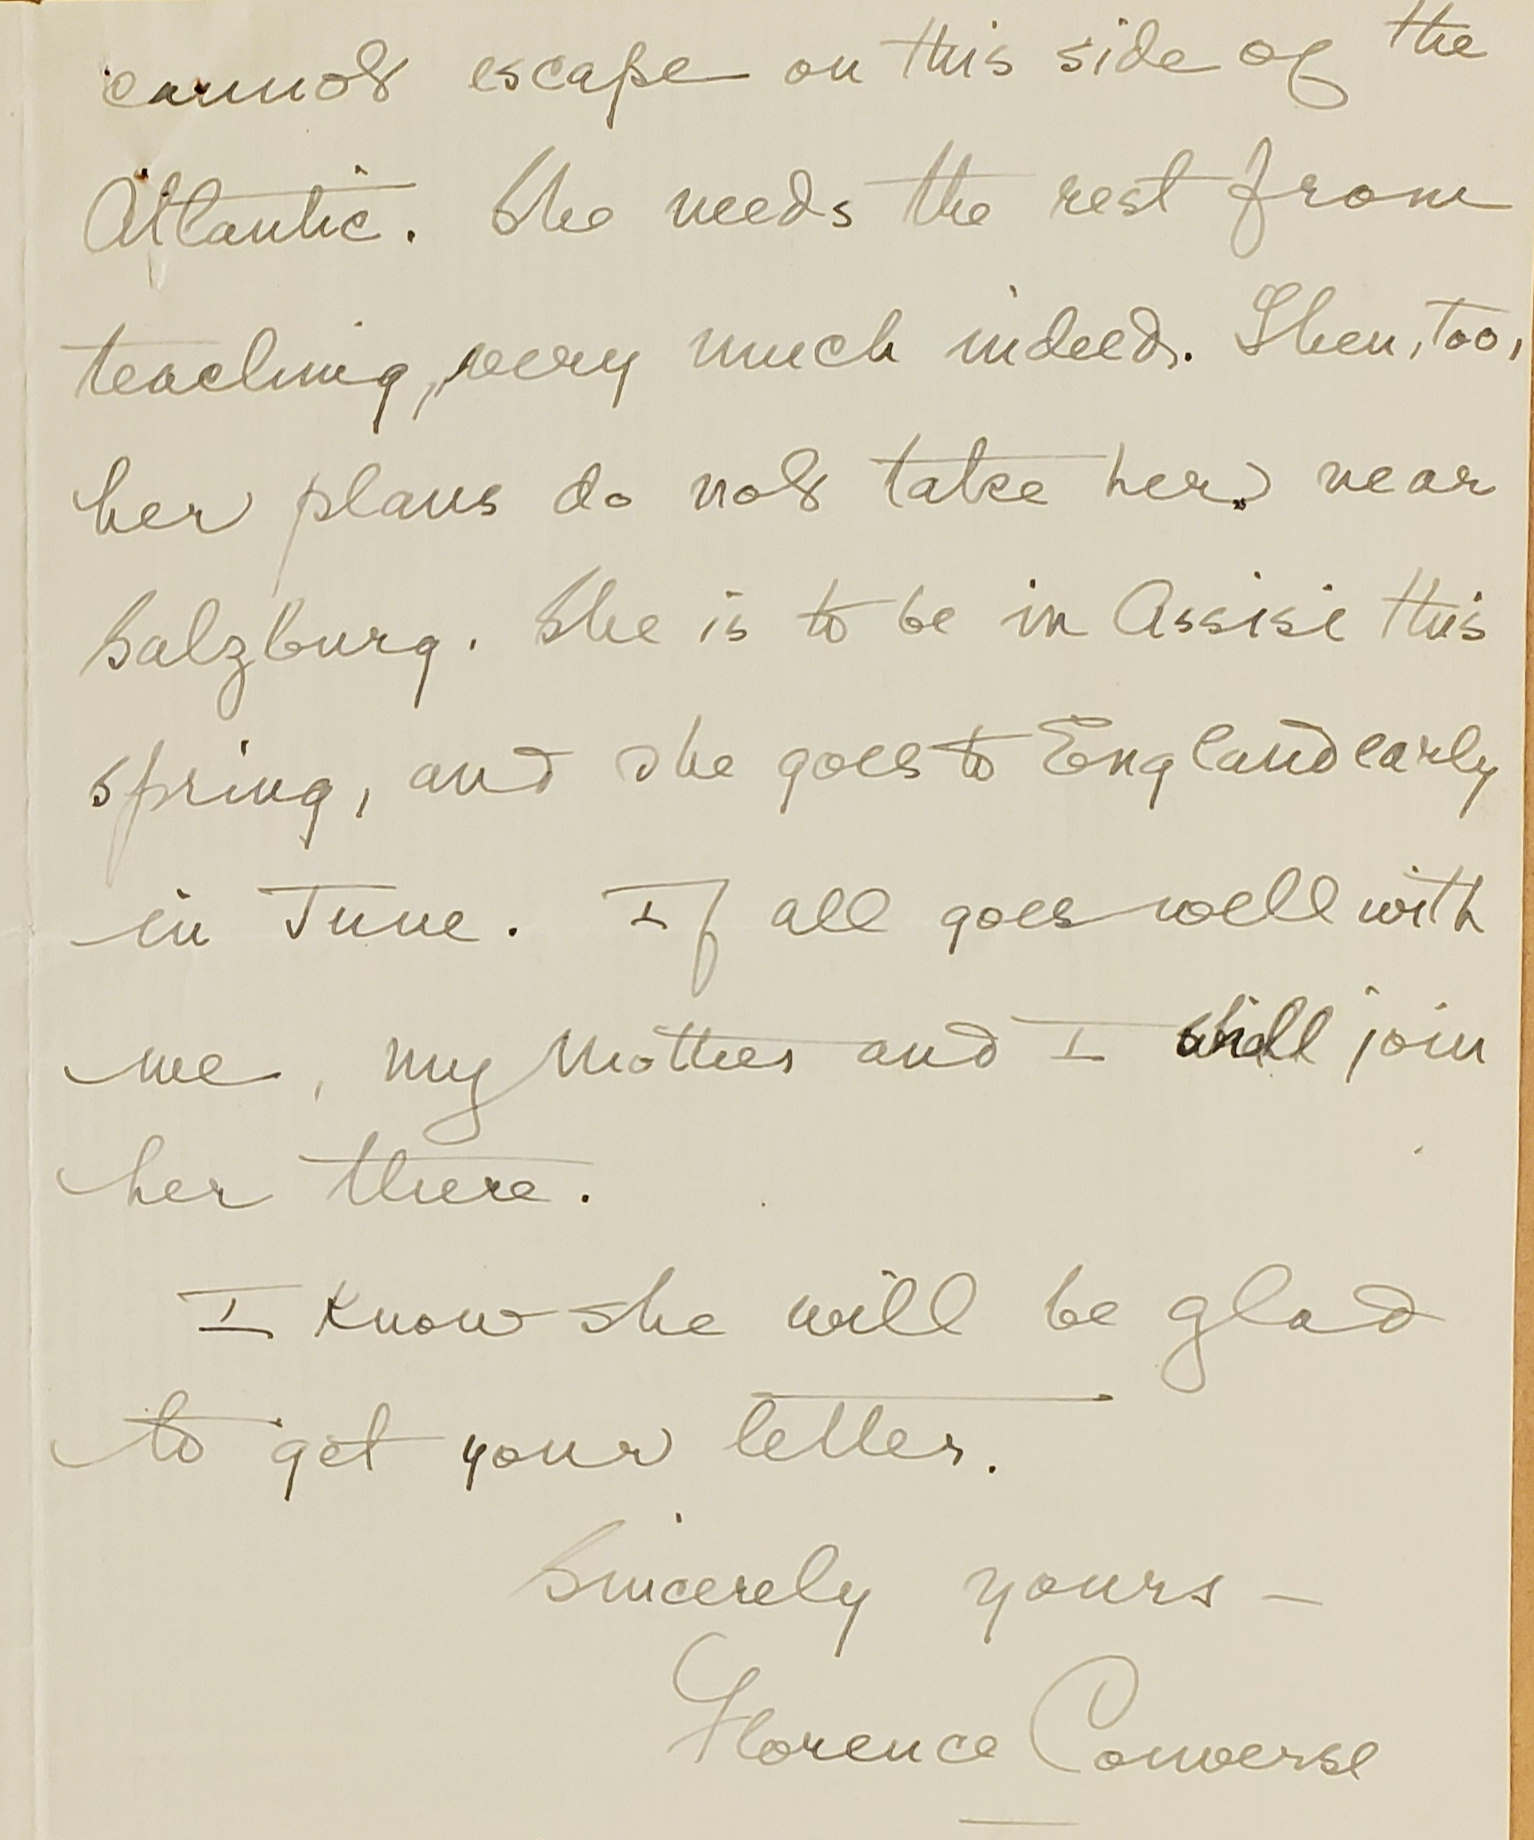 cannot escape on this side of the
Atlantic. She needs the rest from
teaching, very much indeed. Then, too,
her plans do not take her near
Salzburg. She is to be in Assisi this
spring, and she goes to England early
in June. If all goes well with
me, my Mother and I shall join
her there.
I know she will be glad
to get your letter.
Sincerely yours —
Florence Converse